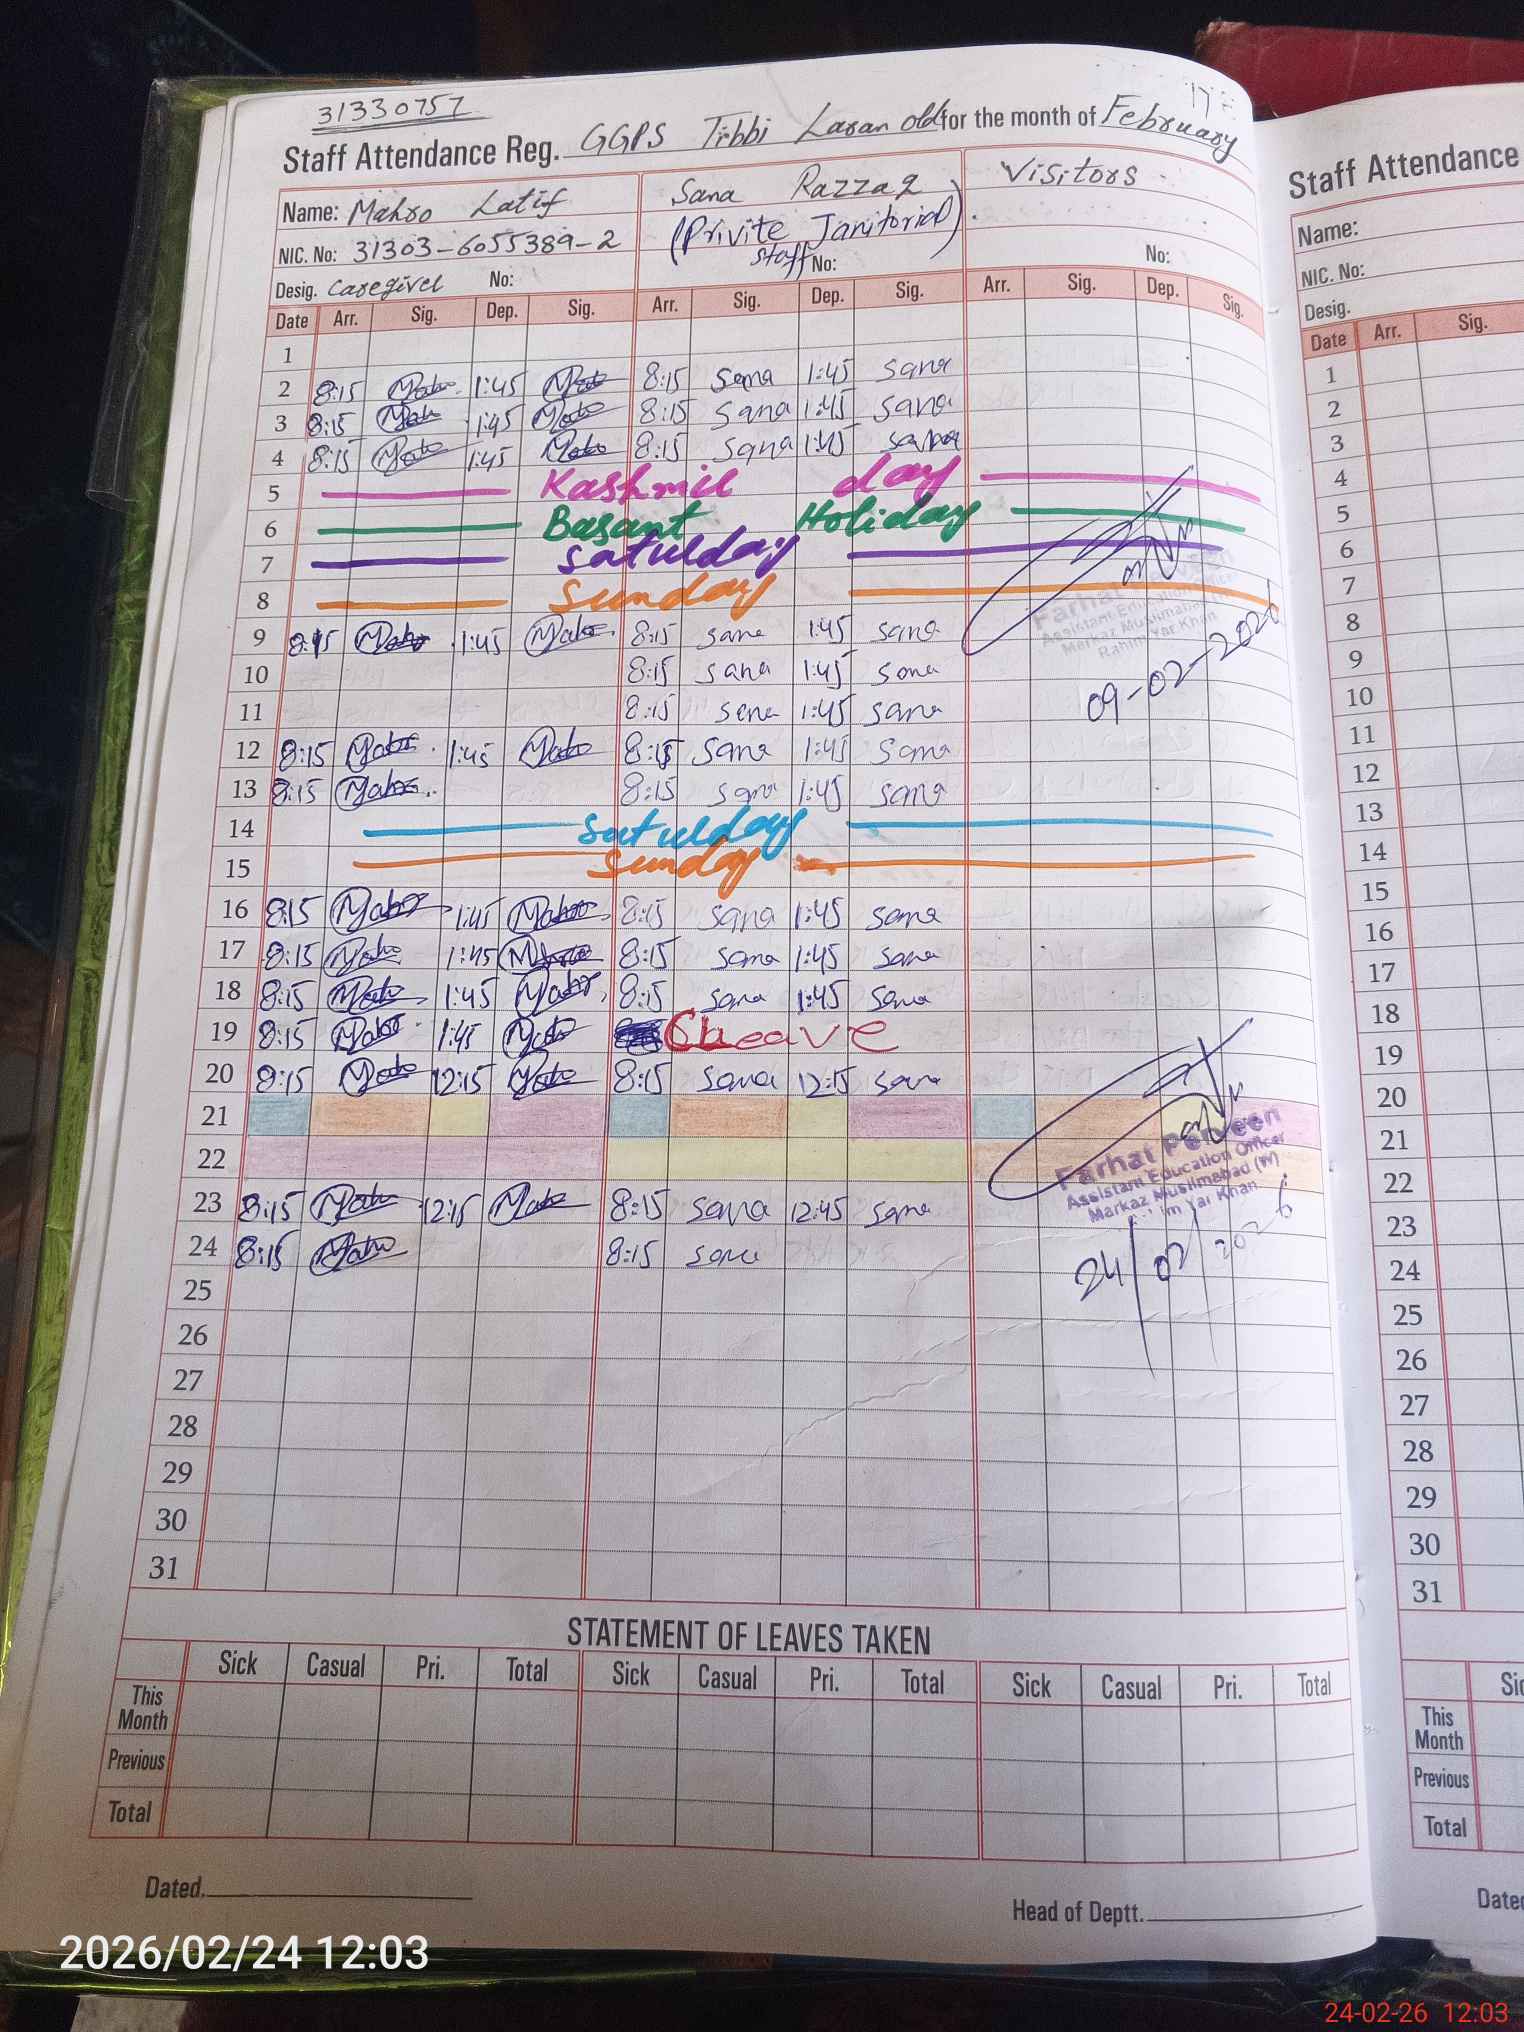 31330757
Staff Attendance Reg. GGPS Tibbi Laran old for the month of February
Name: Mahro Latif
NIC. No: 31303-6055389-2
Desig. Caregivel No:
Sana Razzaq
(Privite Janitorial)
staff No:
Visitors
No:
Date Arr. Sig. Dep. Sig. Arr. Sig. Dep. Sig. Arr. Sig. Dep. Sig.
1
2 8:15 Mahro 1:45 Mahro 8:15 Sana 1:45 Sana
3 8:15 Mahro 1:45 Mahro 8:15 Sana 1:45 Sana
4 8:15 Mahro 1:45 Mahro 8:15 Sana 1:45 Sana
5 Kashmil day
6 Basant Holiday
7 Satulday
8 Sunday
9 8:15 Mahro 1:45 Mahro 8:15 Sana 1:45 Sana
10 8:15 Sana 1:45 Sana
11 8:15 Sana 1:45 Sana
12 8:15 Mahro 1:45 Mahro 8:15 Sana 1:45 Sana
13 8:15 Mahro 8:15 Sana 1:45 Sana
14 Satulday
15 Sunday
16 8:15 Mahro 1:45 Mahro 8:15 Sana 1:45 Sana
17 8:15 Mahro 1:45 Mahro 8:15 Sana 1:45 Sana
18 8:15 Mahro 1:45 Mahro 8:15 Sana 1:45 Sana
19 8:15 Mahro 1:45 Mahro
20 8:15 Mahro 12:15 Mahro 8:15 Sana 12:15 Sana
21
22
23 8:15 Mahro 12:15 Mahro 8:15 Sana 12:45 Sana
24 8:15 Mahro 8:15 Sana
25
26
27
28
29
30
31
Farhat Perveen
Assistant Education Officer
Markaz Muslimabad
Rahim Yar Khan
09-02-2026
Farhat Perveen
Assistant Education Officer
Markaz Muslimabad (W)
Yar Khan
24/02/2026
STATEMENT OF LEAVES TAKEN
Sick Casual Pri. Total Sick Casual Pri. Total Sick Casual Pri. Total
This Month
Previous
Total
Dated.
Head of Deptt.
Staff Attendance
Name:
NIC. No:
Desig.
Date Arr. Sig.
1
2
3
4
5
6
7
8
9
10
11
12
13
14
15
16
17
18
19
20
21
22
23
24
25
26
27
28
29
30
31
This Month
Previous
Total
2026/02/24 12:03
24-02-26 12:03